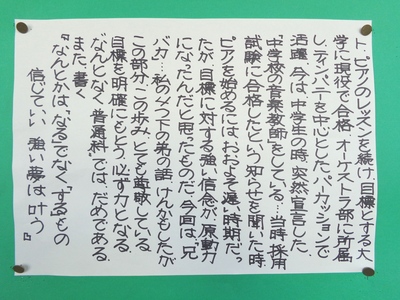 ト、ピアノのレッスンを続け、目標とする大
学に現役で合格 オーケストラ部に所属
し、ティンパニーを中心としたパーカッションで
活躍 今は、中学生の時、突然宣言した
『中学校の音楽教師』をしている…当時、採用
試験に合格したという知らせを聞いた時、
ピアノを始めるにはおおよそ遅い時期だっ
たが、目標に対する強い信念が原動力
になったんだと思ったものだ。今回は、兄
バカ…私の4つ下の弟の話 けんかもしたが
この部分、この歩み、とても尊敬している
目標を明確にもとう、必ず力となる
なんとなく、普通科、では、だめである
また、書く
『なんとかは、なる』でなく『する』もの
信じていい、強い夢は叶う『